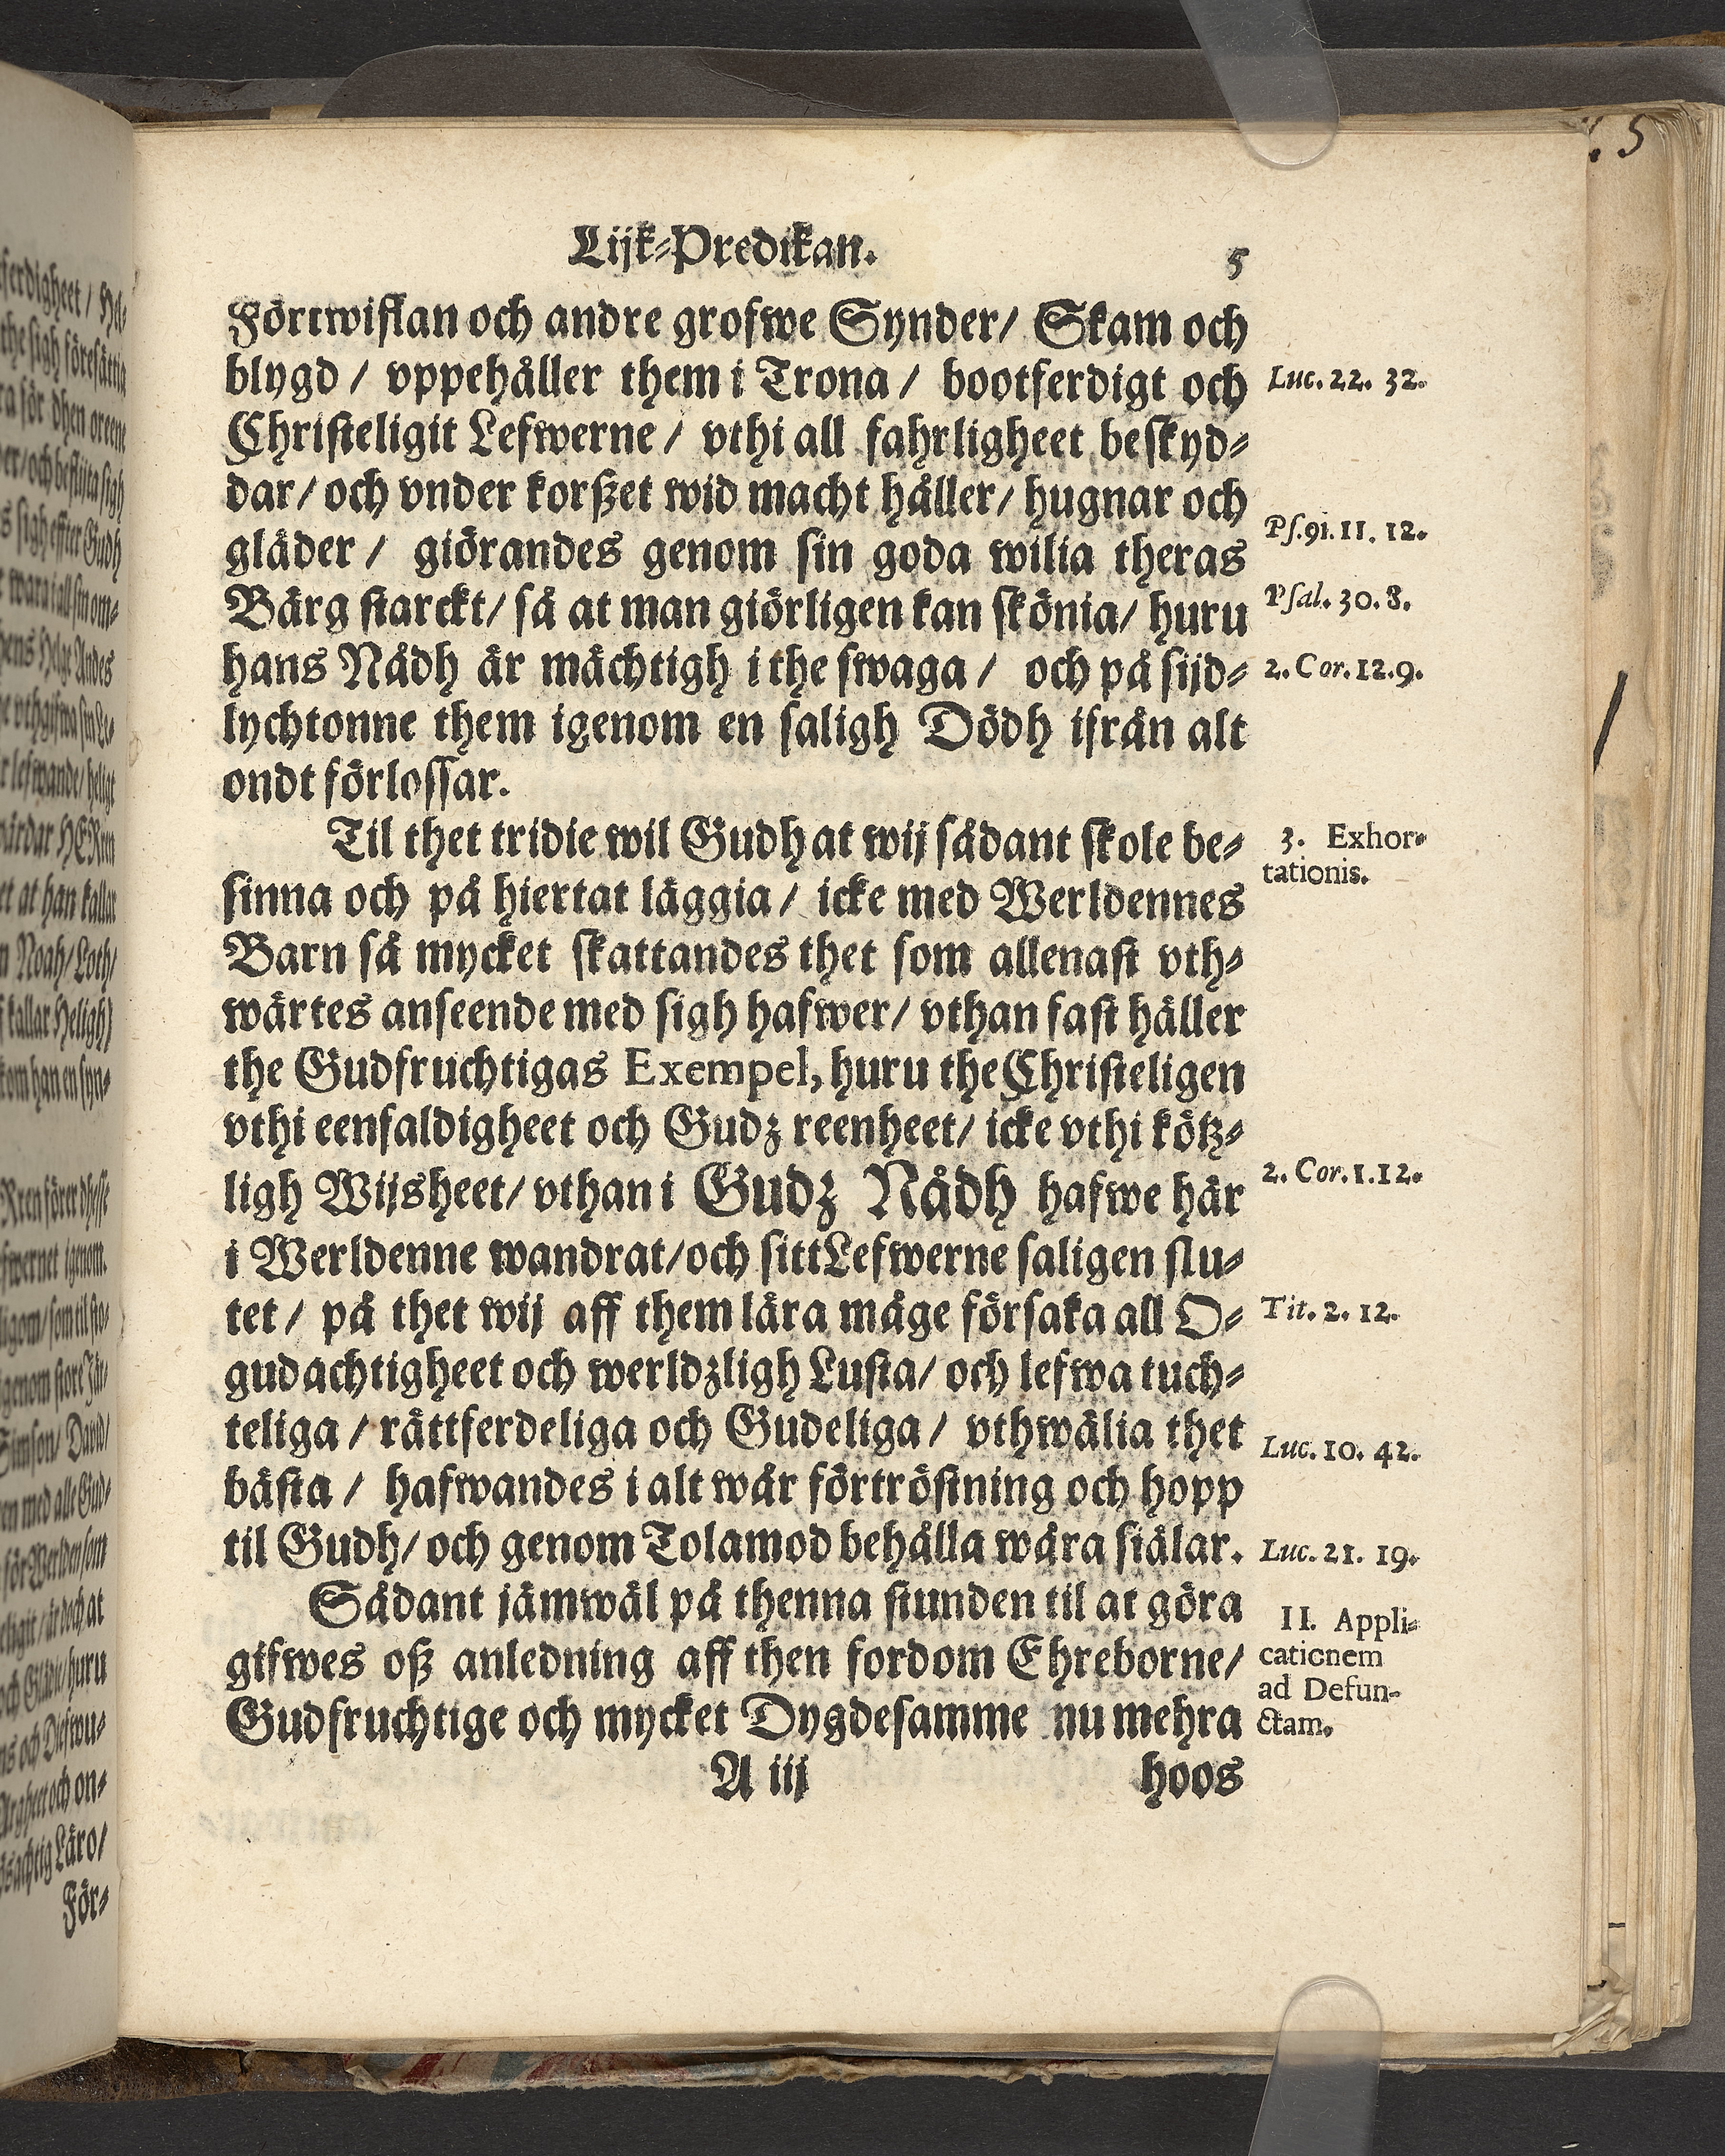 Lijk-Predikan. 5
Förtwiflan och andre grofwe Synder/ Skam och
blygd / vppehåller them i Trona / bootferdigt och
Luc. 22. 32.
Christeligit Lefwerne / vthi all fahrligheet beskyd-
dar/ och vnder korßet wid macht håller/ hugnar och
Ps. 91. 11. 12.
gläder / giörandes genom sin goda wilia theras
Bärg starckt/ så at man giörligen kan skönia/ huru
Psal. 30. 8.
hans Nådh är mächtigh i the swaga / och på sijd-
2. Cor. 12. 9.
lychtonne them igenom en saligh Dödh ifrån alt
ondt förlossar.
Til thet tridie wil Gudh at wij sådant skole be-
3. Exhor-
tationis.
sinna och på hiertat läggia / icke med Werldennes
Barn så mycket skattandes thet som allenast vth-
wärtes anseende med sigh hafwer/ vthan fast häller
the Gudfruchtigas Exempel, huru the Christeligen
vthi eenfaldigheet och Gudz reenheet/ icke vthi kötz-
ligh Wijsheet/ vthan i Gudz Nådh hafwe här
2. Cor. 1. 12.
i Werldenne wandrat/ och sitt Lefwerne saligen slu-
tet / på thet wij aff them lära måge försaka all O-
Tit. 2. 12.
gudachtigheet och werldzligh Lusta/ och lefwa tuch-
teliga / rättferdeliga och Gudeliga / vthwälia thet
Luc. 10. 42.
bästa / hafwandes i alt wår förtröstning och hopp
til Gudh/ och genom Tolamod behålla wåra siälar.
Luc. 21. 19.
Sådant jämwäl på thenna stunden til at göra
II. Appli-
cationem
ad Defun-
ctam.
gifwes oß anledning aff then fordom Ehreborne/
Gudfruchtige och mycket Dygdesamme nu mehra
A iij hoos